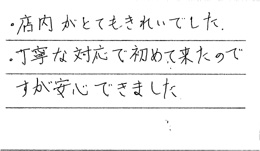 ・店内がとてもきれいでした.
・丁寧な対応で初めて来たので
すが安心できました